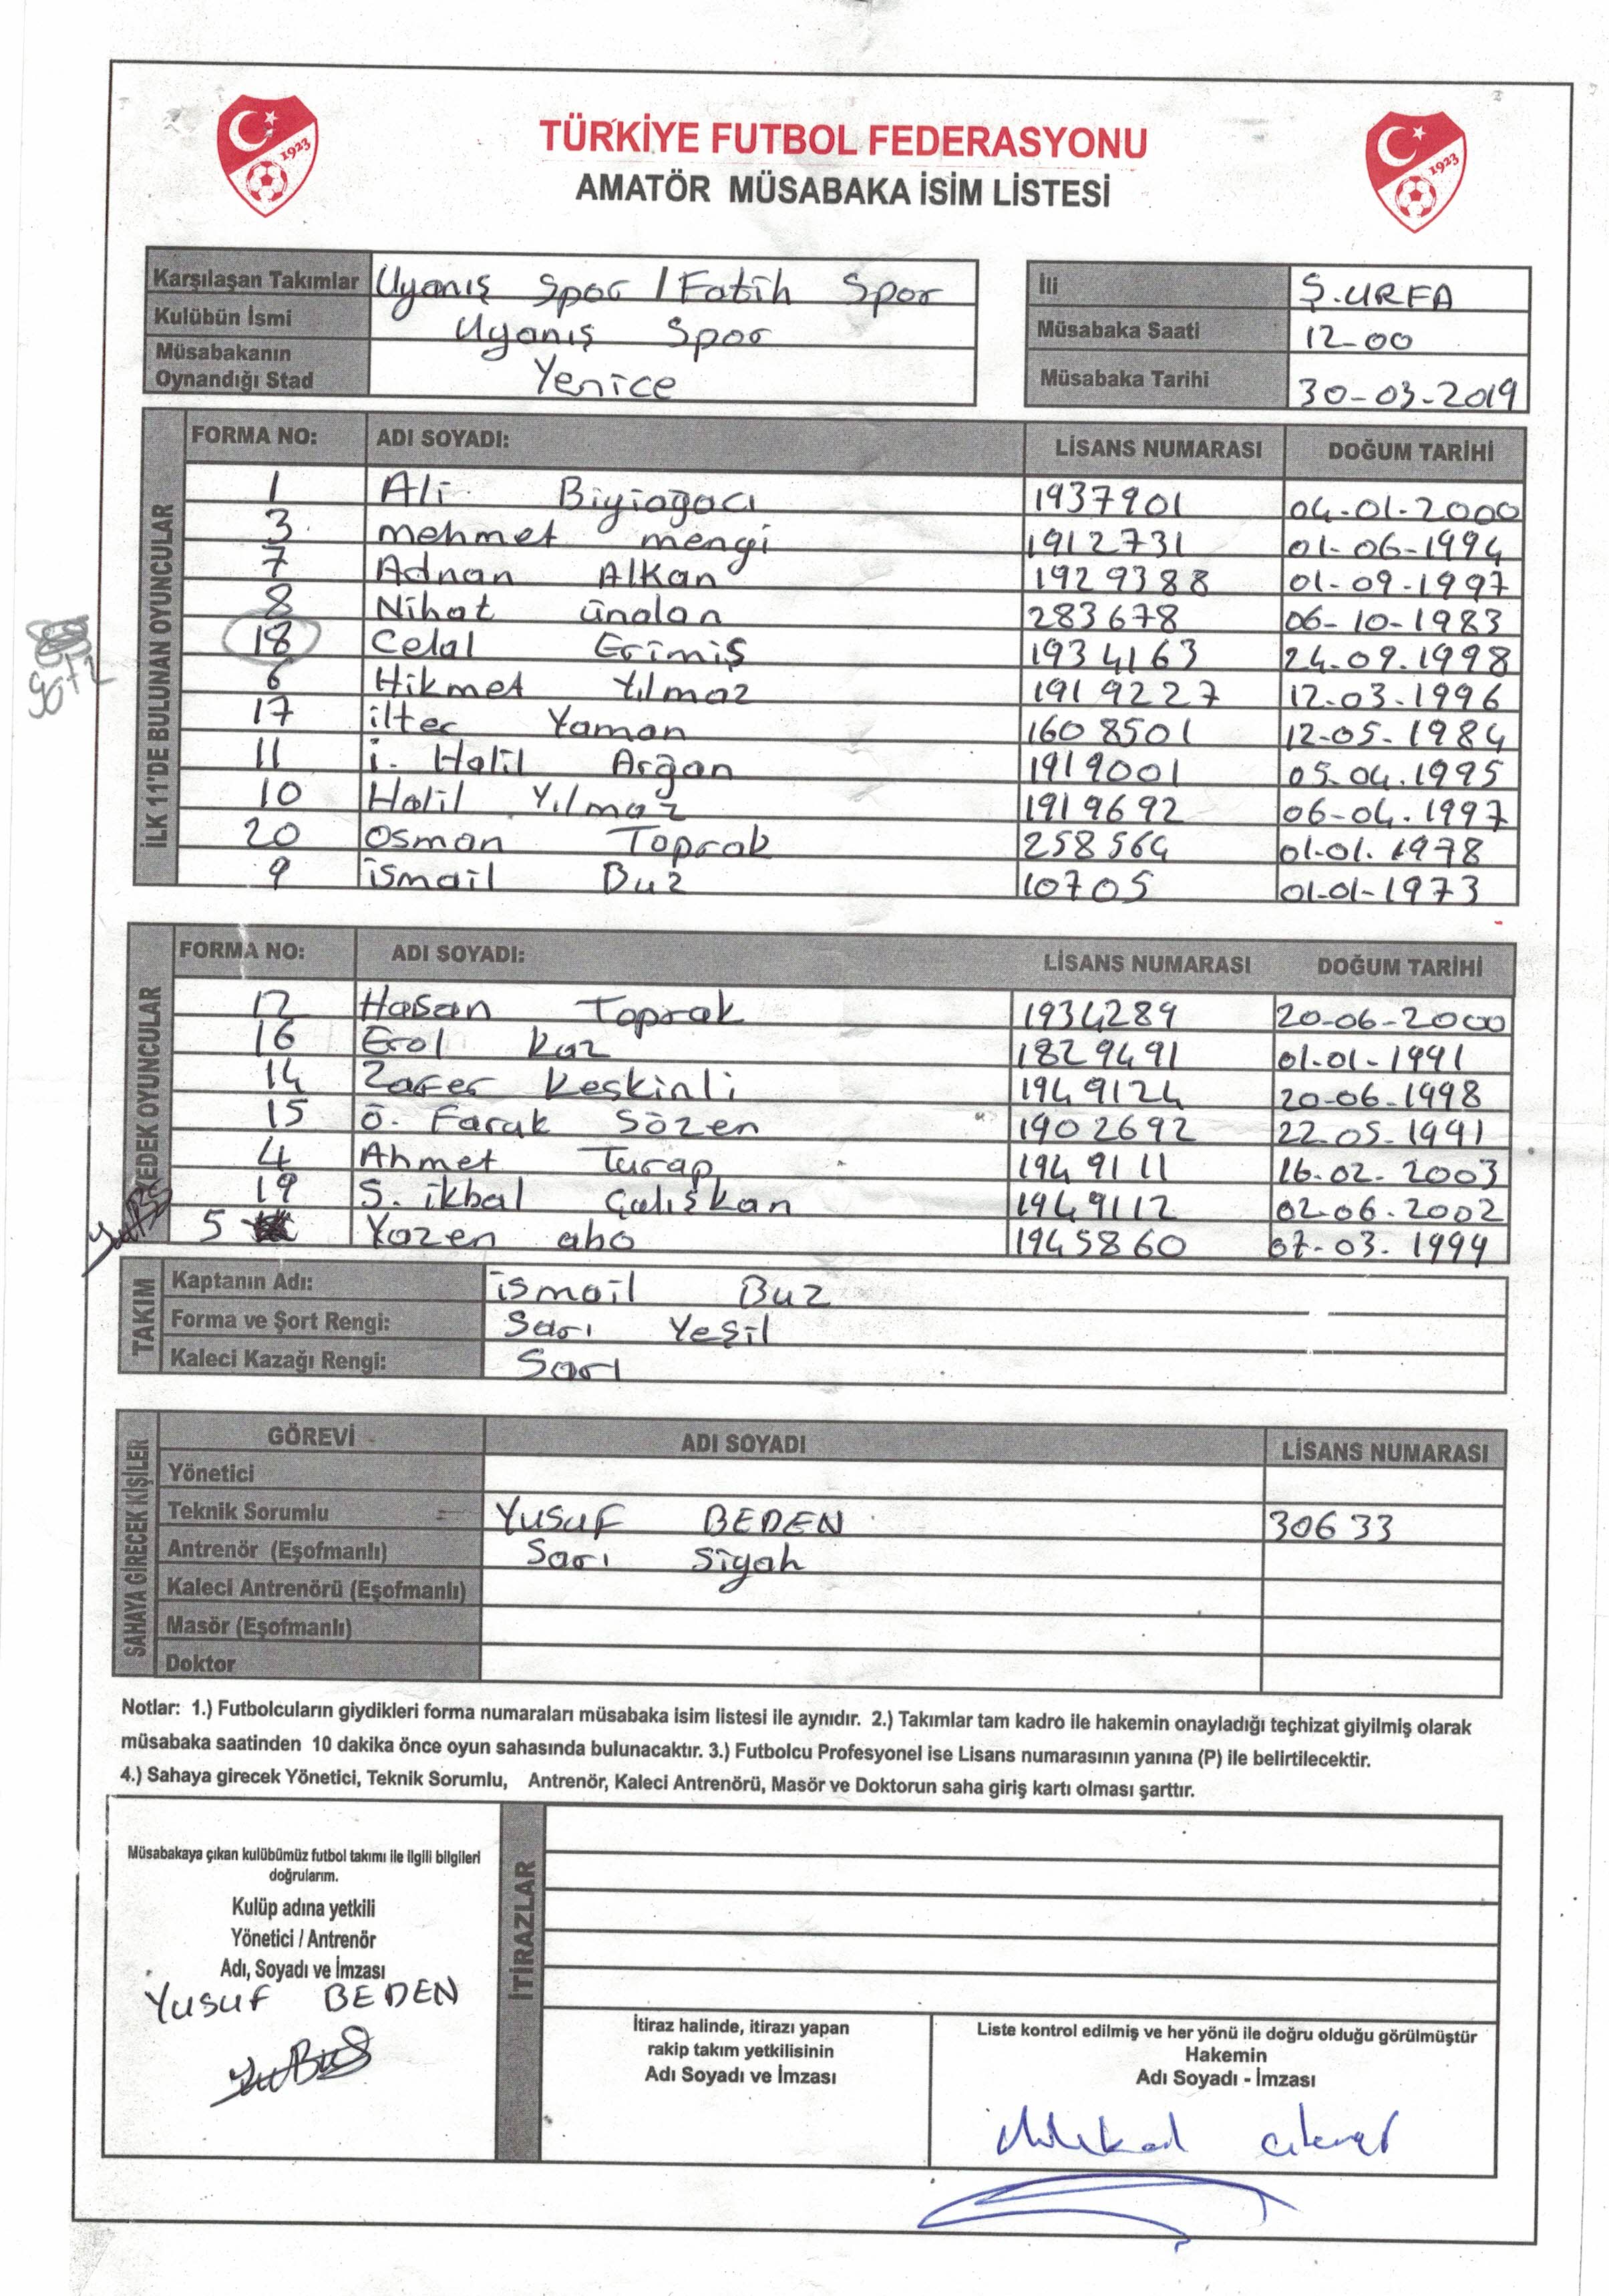 1923
1923
TÜRKİYE FUTBOL FEDERASYONU
AMATÖR MÜSABAKA İSİM LİSTESİ
Karşılaşan Takımlar Uyanış Spor / Fatih Spor
Kulübün İsmi Uyanış Spor
Müsabakanın Oynandığı Stad Yenice
İli Ş.URFA
Müsabaka Saati 12-00
Müsabaka Tarihi 30-03-2019
İLK 11'DE BULUNAN OYUNCULAR
FORMA NO: ADI SOYADI: LİSANS NUMARASI DOĞUM TARİHİ
1 Ali Biyiağacı 1937901 04-01-2000
3 mehmet mengi 1912731 01-06-1994
7 Adnan Alkan 1929388 01-09-1997
8 Nihat ünalan 283678 06-10-1983
18 Celal Erimiş 1934163 24.09.1998
90+2
6 Hikmet Yılmaz 1919227 12-03-1996
17 ilter Yaman 1608501 12-05-1984
11 i. Halil Arğan 1919001 05.04.1995
10 Halil Yılmaz 1919692 06-04.1997
20 Osman Toprak 258564 01-01.1978
9 ismail Buz 10705 01-01-1973
YEDEK OYUNCULAR
FORMA NO: ADI SOYADI: LİSANS NUMARASI DOĞUM TARİHİ
12 Hasan Toprak 1934289 20-06-2000
16 Erol Kaz 1829491 01-01-1991
14 Zafer Keskinli 1949124 20-06-1998
15 Ö. Faruk Sözen 1902692 22.05.1991
4 Ahmet Turap 1949111 16.02.2003
19 S. ikbal Çalışkan 1949112 02.06.2002
5 Yazen abo 1945860 07-03.1999
TAKIM
Kaptanın Adı: ismail Buz
Forma ve Şort Rengi: Sarı Yeşil
Kaleci Kazağı Rengi: Sarı
SAHAYA GİRECEK KİŞİLER
GÖREVİ ADI SOYADI LİSANS NUMARASI
Yönetici
Teknik Sorumlu Yusuf BEDEN 30633
Antrenör (Eşofmanlı) Sarı Siyah
Kaleci Antrenörü (Eşofmanlı)
Masör (Eşofmanlı)
Doktor
Notlar: 1.) Futbolcuların giydikleri forma numaraları müsabaka isim listesi ile aynıdır. 2.) Takımlar tam kadro ile hakemin onayladığı teçhizat giyilmiş olarak
müsabaka saatinden 10 dakika önce oyun sahasında bulunacaktır. 3.) Futbolcu Profesyonel ise Lisans numarasının yanına (P) ile belirtilecektir.
4.) Sahaya girecek Yönetici, Teknik Sorumlu, Antrenör, Kaleci Antrenörü, Masör ve Doktorun saha giriş kartı olması şarttır.
Müsabakaya çıkan kulübümüz futbol takımı ile ilgili bilgileri
doğrularım.
Kulüp adına yetkili
Yönetici / Antrenör
Adı, Soyadı ve İmzası
Yusuf BEDEN
İTİRAZLAR
İtiraz halinde, itirazı yapan
rakip takım yetkilisinin
Adı Soyadı ve İmzası
Liste kontrol edilmiş ve her yönü ile doğru olduğu görülmüştür
Hakemin
Adı Soyadı - İmzası